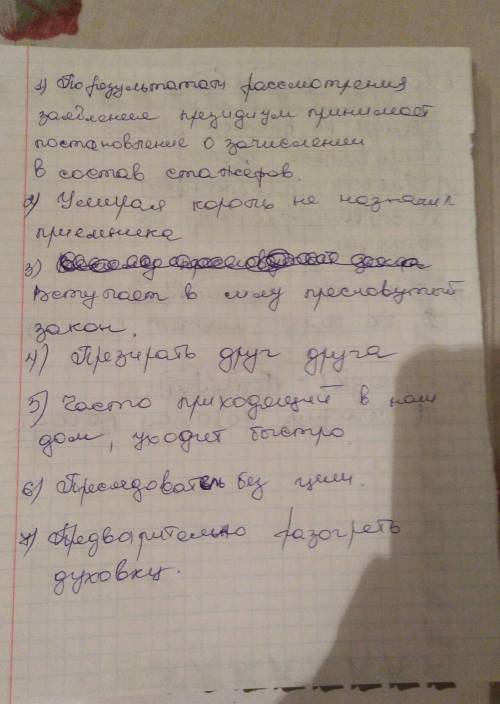 1) По результатам рассмотрения
заявления президиум принимает
постановление о зачислении
в состав стажёров.
2) Умирая король не назначил
приемника
3)
Вступает в силу пресловутый
закон.
4) Презирать друг друга
5) Часто приходящий в наш
дом, уходит быстро.
6) Преследователь без цели.
7) Предварительно разогреть
духовку.